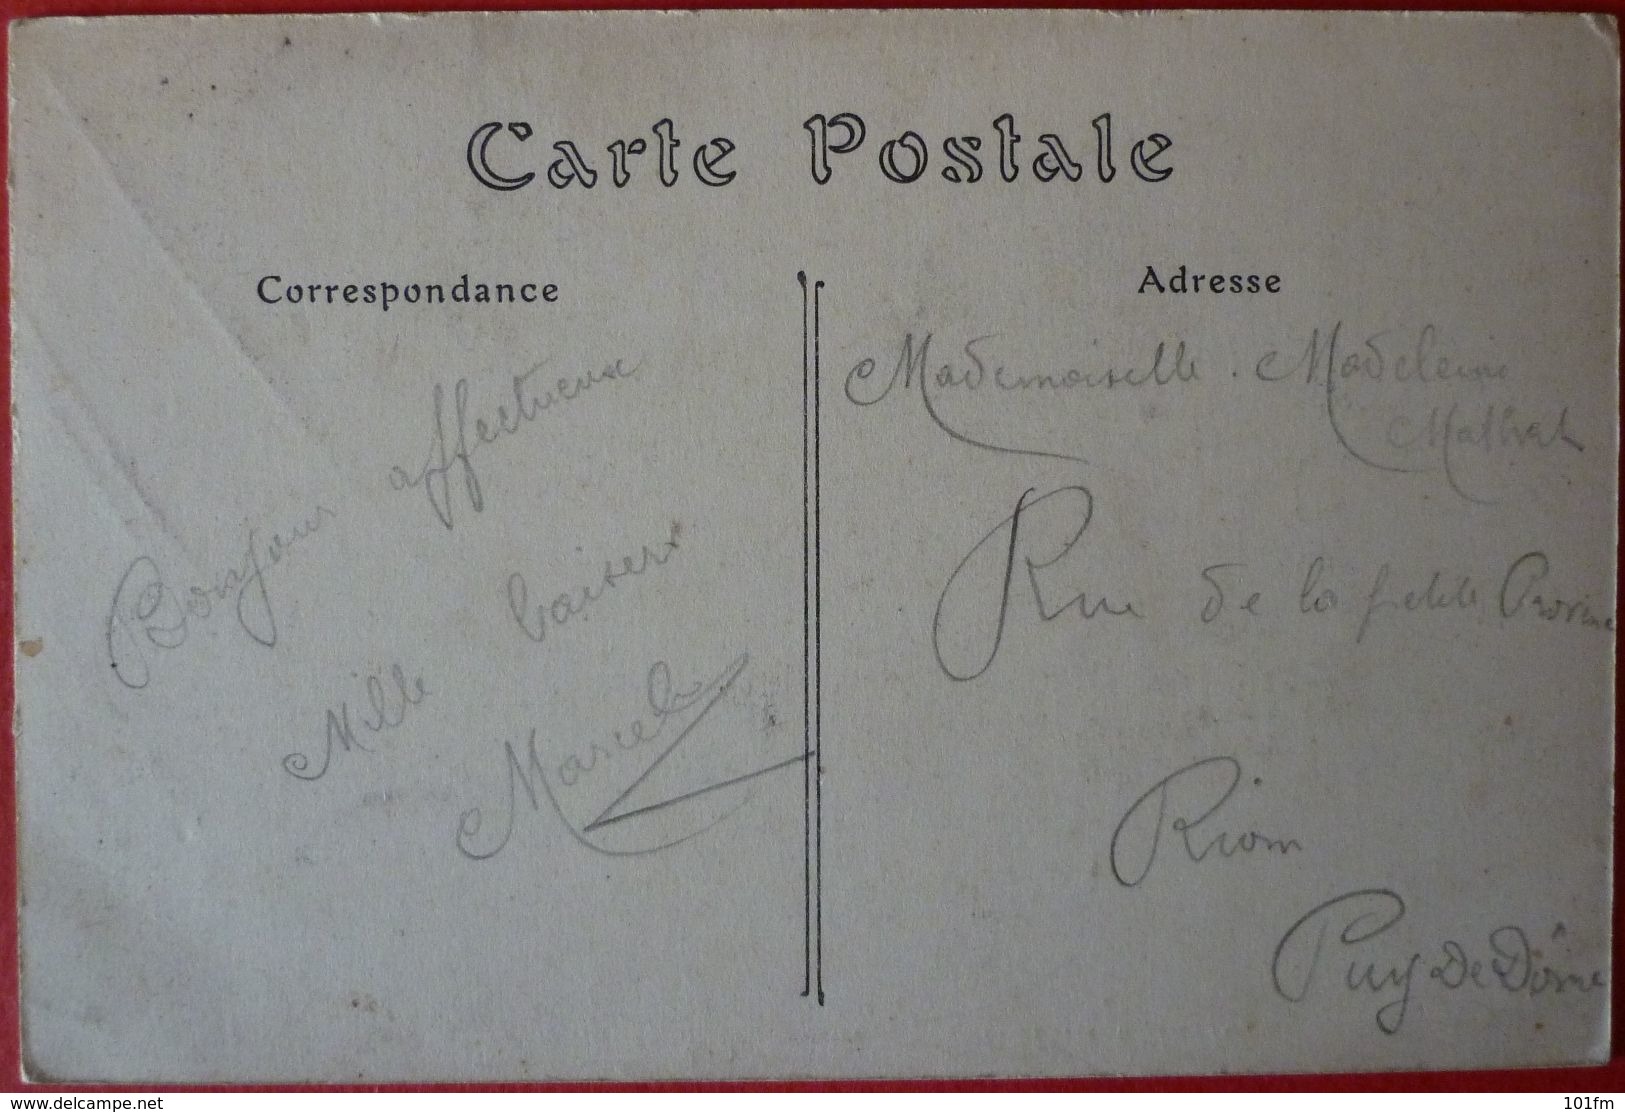 Carte Postale
Correspondance
Bonjour affectueux
Mille baisers
Marcel
Adresse
Mademoiselle. Madeleine
Rue de la petite
Riom
Puy De Dôme
www.delcampe.net
101fm